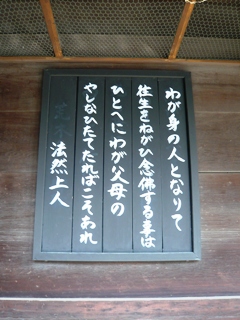 わが身の人となりて
往生をねがひ念佛する事は
ひとへにわが父母の
やしなひたてたればこそあれ
法然上人